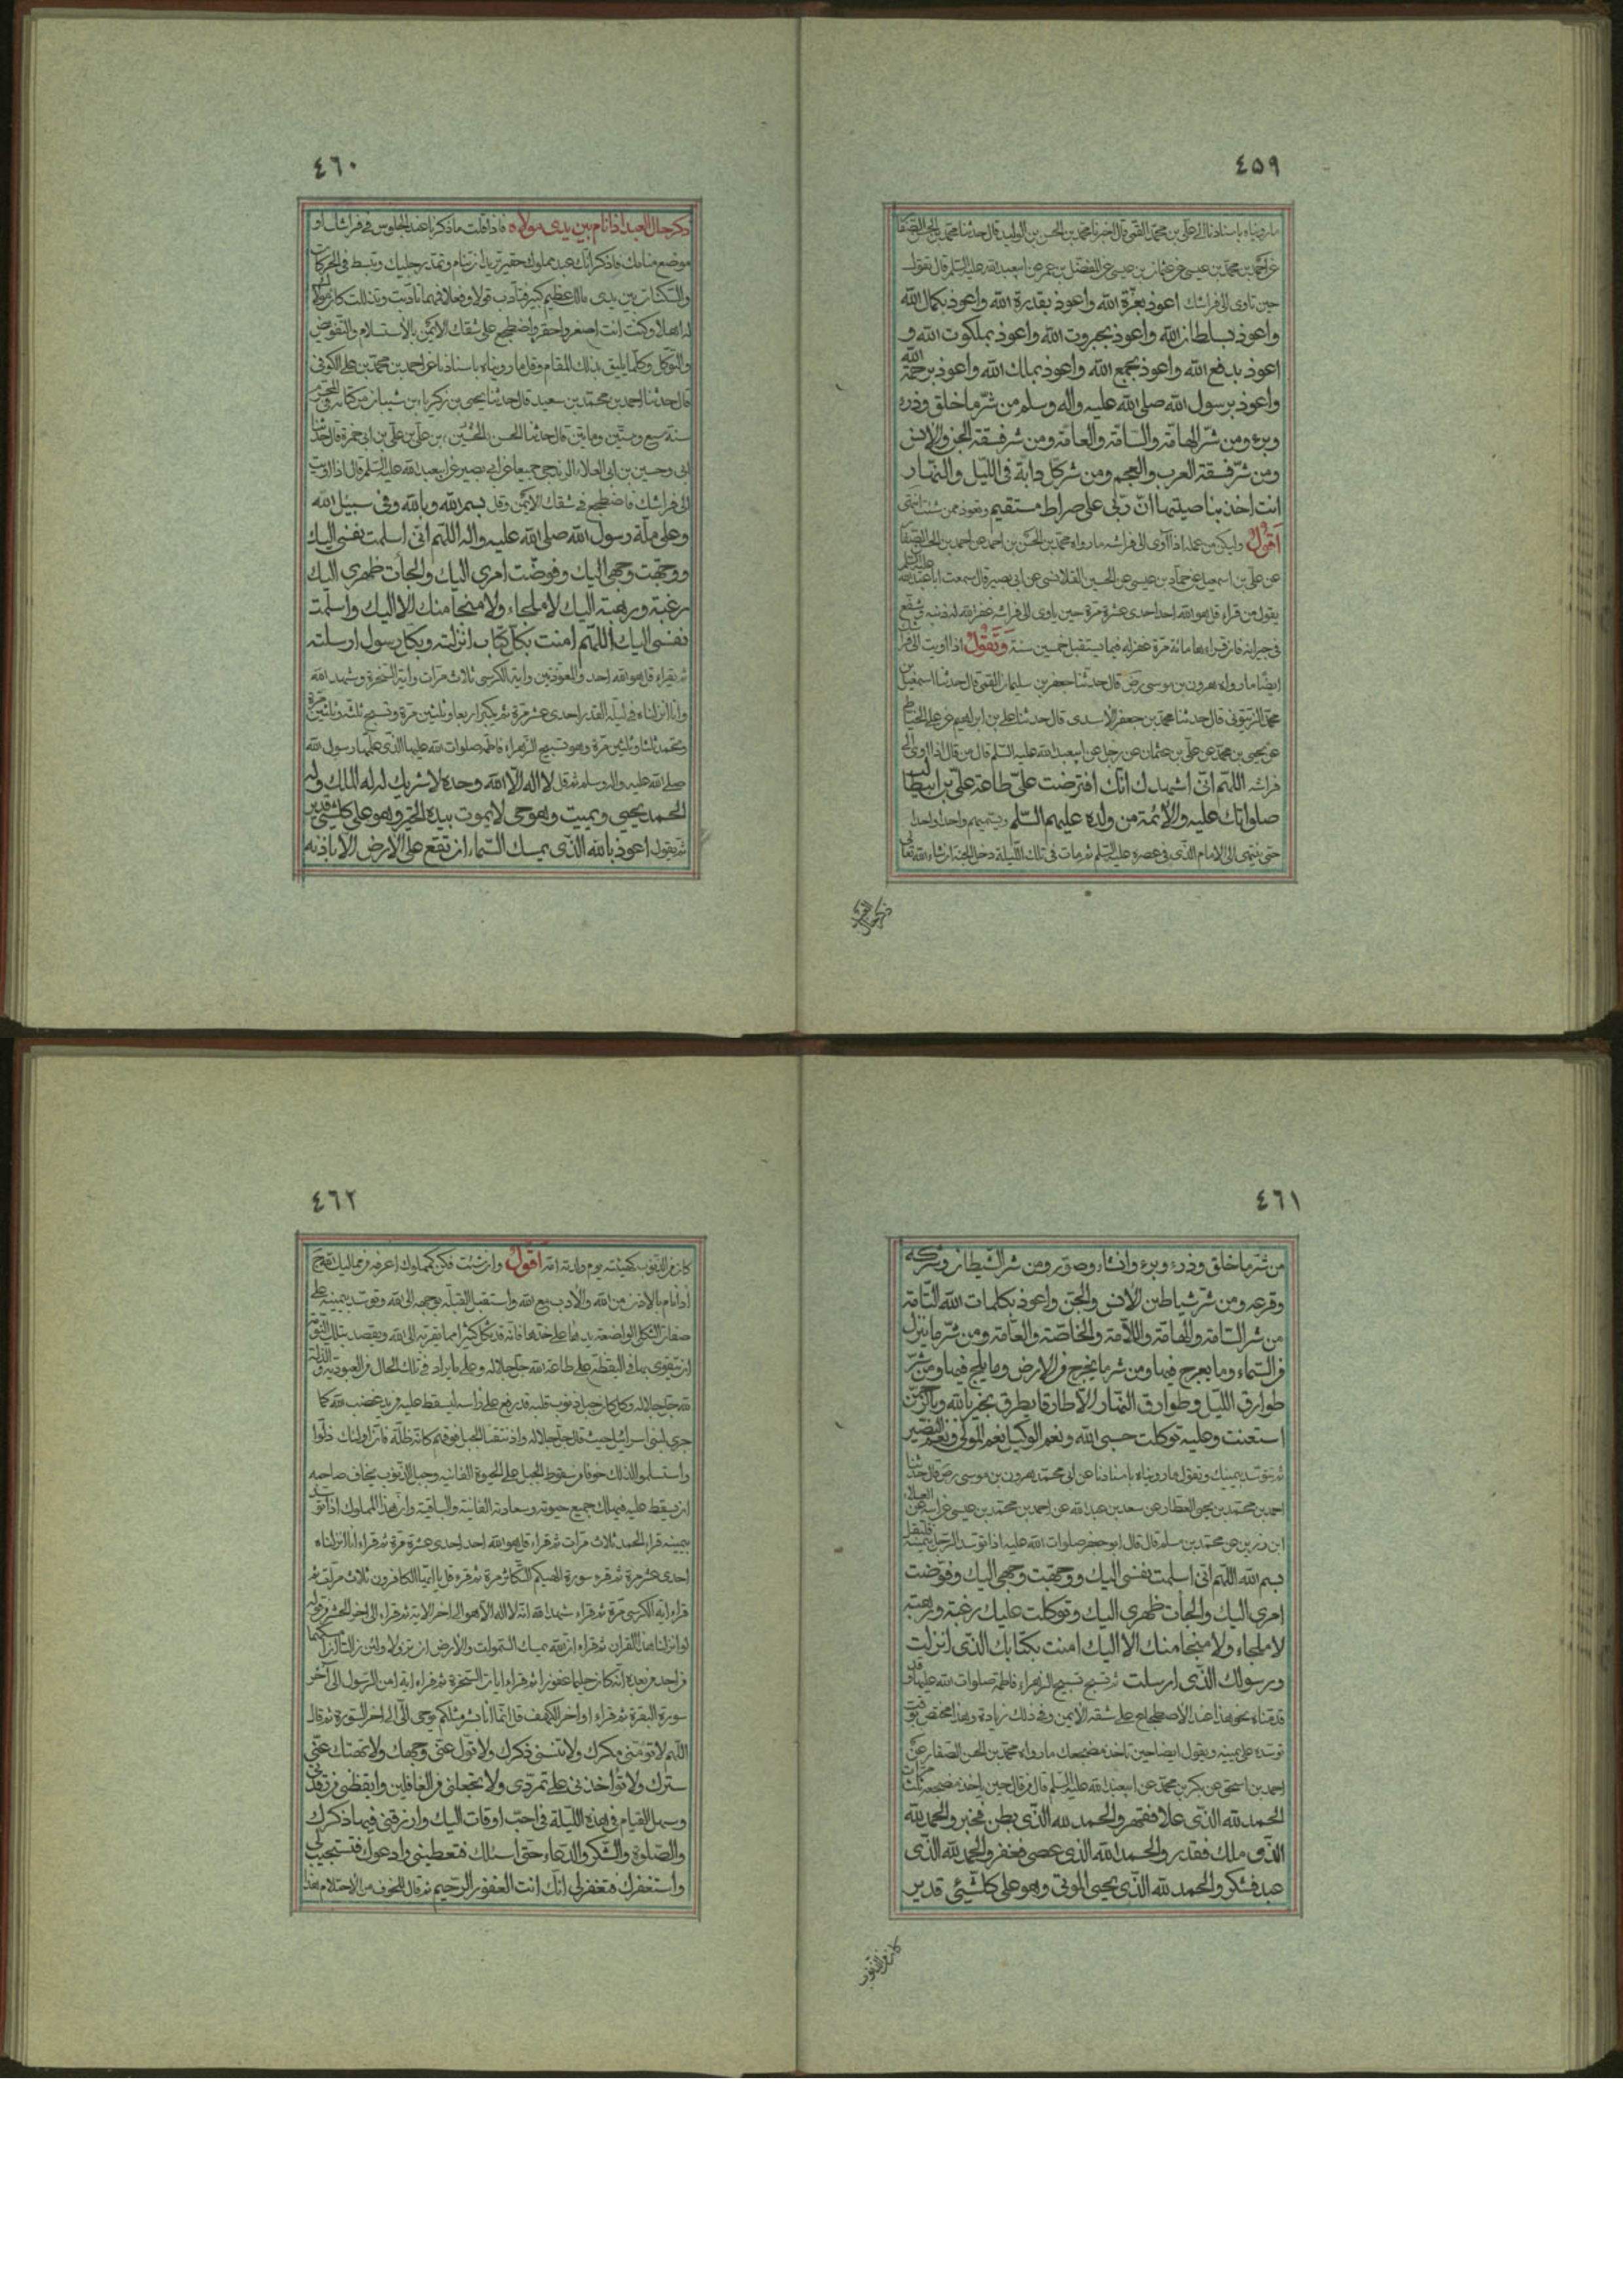 ٤٥٩
ما رويناه باسنادنا الى على بن محمد القمى قال اخبرنا محمد بن الحسن بن الوليد قال حدثنا محمد بن الحسن الصفار
عن احمد بن محمد بن عيسى عن عثمان بن عيسى عن المفضل بن عمر عن ابيعبد الله عليه السلم قال تقول
حين تاوى الى فراشك اعوذ بعزة الله واعوذ بقدرة الله واعوذ بكمال الله
واعوذ بسلطان الله واعوذ بجبروت الله واعوذ بملكوت الله و
اعوذ بدفع الله واعوذ بجمع الله واعوذ بملك الله واعوذ برحمة الله
واعوذ برسول الله صلى الله عليه واله وسلم من شر ما خلق وذرء
وبرء ومن شر الهامة والسامة والعامة ومن شر فسقة الجن والانس
ومن شر فسقة العرب والعجم ومن شر كل دابة فى الليل والنهار
انت اخذ بناصيتها ان ربى على صراط مستقيم وتعوذ ممن شئت
اقول وليكن من عمله اذا اوى الى فراشه ما رواه محمد بن الحسن بن احمد عن احمد بن الحسن الصفار
عن على بن اسمعيل عن حماد بن عيسى عن الحسين القلانسى عن ابى بصير قال سمعت ابا عبد الله عليه السلم
يقول من قراء قل هو الله احد احدى عشرة مرة حين ياوى الى فراشه غفر الله له ذنبه وشفع
فى جيرانه فان قراءها مائة مرة غفر له فيما يستقبل خمسين سنة وتقول اذا اويت الى فراشك
ايضا ما رواه هرون بن موسى رض قال حدثنا جعفر بن سليمان القمى قال حدثنا اسمعيل بن
محمد الزيتونى قال حدثنا محمد بن جعفر الاسدى قال حدثنا على بن ابراهيم عن على الخياط
عن يحيى بن محمد عن على بن عثمان عن رجل عن ابيعبد الله عليه السلم قال من قال اذا اوى الى
فراشه اللهم انى اشهدك انك افترضت على طاعة على بن ابيطالب
صلواتك عليه والائمة من ولده عليهم السلم ويسميهم واحدا واحدا
حتى ينتهى الى الامام الذى فى عصره عليه السلم ثم مات فى تلك الليلة دخل الجنة ان شاء الله تعالى
ذكر حال العبد
٤٦٠
ذكر حال العبد اذا نام بين يدى مولاه فاذا قلت ما ذكرناه عند الجلوس فى فراشك او
موضع منامك فاذكر انك عبد مملوك حقير تريد ان تنام وتمد رجليك وتبسط فى الحركات
والسكنات بين يدى مالك عظيم كبير فتادب قولا وفعلا فمهما تادبت وتذللت كان مولاك
له اهلا وكنت انت اصغر واحقر واضطجع على شقك الايمن بالاستسلام والتفويض
والتوكل وكلما يليق بذلك المقام وقل ما رويناه باسنادنا عن احمد بن محمد بن على الكوفى
قال حدثنا احمد بن محمد بن سعيد قال حدثنا يحيى بن زكريا بن شيبان من كتابه فى المحرم
سنة سبع وستين ومايتين قال حدثنا الحسن بن على بن ابى حمزة قال حدثنا
ابى وحسين بن ابى العلاء الزندجى جميعا عن ابى بصير عن ابيعبد الله عليه السلم قال اذا اويت
الى فراشك فاضطجع فى شقك الايمن وقل بسم الله وبالله وفى سبيل الله
وعلى ملة رسول الله صلى الله عليه واله اللهم انى اسلمت نفسى اليك
ووجهت وجهى اليك وفوضت امرى اليك والجأت ظهرى اليك
رغبة ورهبة اليك لا ملجاء ولا منجا منك الا اليك واسلمت
نفسى اليك اللهم امنت بكل كتاب انزلته وبكل رسول ارسلته
ثم يقراء قل هو الله احد والمعوذتين واية الكرسى ثلاث مرات واية السخرة وشهد الله
وانا انزلناه فى ليلة القدر احدى عشر مرة ثم يكبر اربعا وثلثين مرة وتسبح ثلثة وثلثين مرة
وتحمد ثلثا وثلثين مرة وهو تسبيح الزهراء فاطمة صلوات الله عليها الذى علمها رسول الله
صلى الله عليه واله وسلم ثم قل لا اله الا الله وحده لا شريك له له الملك وله
الحمد يحيى ويميت وهو حى لا يموت بيده الخير وهو على كل شئ قدير
ثم يقول اعوذ بالله الذى يمسك السماء ان تقع على الارض الا باذنه
٤٦١
من شر ما خلق وذرء وبرء وانشاء وصور ومن شر الشيطان وشركه
وقرعه ومن شر شياطين الانس والجن واعوذ بكلمات الله التامة
من شر السامة والهامة واللامة والخاصة والعامة ومن شر ما ينزل
من السماء وما يعرج فيها ومن شر ما يخرج من الارض وما يلج فيها ومن شر
طوارق الليل وطوارق النهار الا طارقا يطرق بخير بالله وبالرحمن
استعنت وعليه توكلت حسبى الله ونعم الوكيل نعم المولى ونعم النصير
ثم تتوسد بيمينك وتقول ما رويناه باسنادنا عن ابى محمد هرون بن موسى رض قال حدثنا
احمد بن محمد بن يحيى العطار عن سعد بن عبد الله عن احمد بن محمد بن عيسى عن ابيه عن العلاء
ابن رزين عن محمد بن مسلم قال قال ابو جعفر صلوات الله عليه اذا توسد الرجل يمينه فليقل
بسم الله اللهم انى اسلمت نفسى اليك ووجهت وجهى اليك وفوضت
امرى اليك والجأت ظهرى اليك وتوكلت عليك رغبة ورهبة
لا ملجاء ولا منجا منك الا اليك امنت بكتابك الذى انزلت
ورسولك الذى ارسلت ثم تسبح تسبيح الزهراء فاطمة صلوات الله عليها وقد
قدمناه نحو هذا عند الاضطجاع على شقه الايمن وفى ذلك زيادة وهذا مختص بوقت
توسده على يمينه ويقول ايضا حين تاخذ مضجعك ما رواه محمد بن الحسن الصفار عن
احمد بن اسحق عن بكر بن محمد عن ابيعبد الله عليه السلم قال من قال حين ياخذ مضجعه ثلث مرات
الحمد لله الذى علا فقهر والحمد لله الذى بطن فخبر والحمد لله
الذى ملك فقدر والحمد لله الذى عصى فغفر والحمد لله الذى
عبد فشكر والحمد لله الذى يحيى الموتى وهو على كل شئ قدير
كان من الذنوب
٤٦٢
كان من الذنوب كهيئته يوم ولدته امه اقول وان شئت فكن كمملوك اعرفه من مماليك
اذا نام بالاذن من الله والادب مع الله واستقبل القبلة بوجهه الى الله وتوسد بيمينه على
صفات الثكلى الواضعة يدها على خدها فانه قد ثكل كثيرا مما يقربه الى الله ويقصد بتلك النومة
ان يتقوى بها فى اليقظة على طاعة الله جل جلاله وعلى ما يراد فى تلك الحال من العبودية والذلة
لله جل جلاله وكل كان جبل ذنوب قلبه قد رفع على راسه ليسقط عليه من يد غضب الله كما
جرى لبنى اسرائيل حيث قال جل جلاله واذ نتقنا الجبل فوقهم كانه ظلة فان اولئك ذلوا
واستسلموا لذلك خوفا من سقوط الجبل على الحيوة الفانية وجبل الذنوب يخاف صاحبه
ان يسقط عليه فيهلك جميع حيوته وسعادته الفانية والباقية وان هذا المملوك اذا توسد
بيمينه قراء الحمد ثلاث مرات ثم قراء قل هو الله احد احدى عشرة مرة ثم قراء انا انزلناه
احدى عشر مرة ثم قرء سورة الهيكم التكاثر مرة ثم قرء قل يا ايها الكافرون ثلاث مرات ثم
قراء اية الكرسى مرة ثم قراء شهد الله انه لا اله الا هو الى اخر الاية ثم قراء الى اخر الحشر من قوله
لو انزلنا هذا القران ثم قراء ان الله يمسك السموات والارض ان تزولا ولئن زالتا ان امسكهما
من احد من بعده انه كان حليما غفورا ثم قراء ايات السخرة ثم قراء اية امن الرسول الى اخر
سورة البقرة ثم قراء اواخر الكهف قل انما انا بشر مثلكم يوحى الى الى اخر السورة ثم قال
اللهم لا تؤمنى مكرك ولا تنسنى ذكرك ولا تول عنى وجهك ولا تهتك عنى
سترك ولا تؤاخذنى على تمردى ولا تجعلنى من الغافلين وايقظنى من رقدتى
وسهل القيام فى هذه الليلة فى احب اوقات اليك وارزقنى فيها ذكرك
والصلوة والشكر والدعاء حتى اسئلك فتعطينى وادعوك فتستجيب لى
واستغفرك فتغفر لى انك انت الغفور الرحيم ثم قال للخوف من الاحتلام هذا